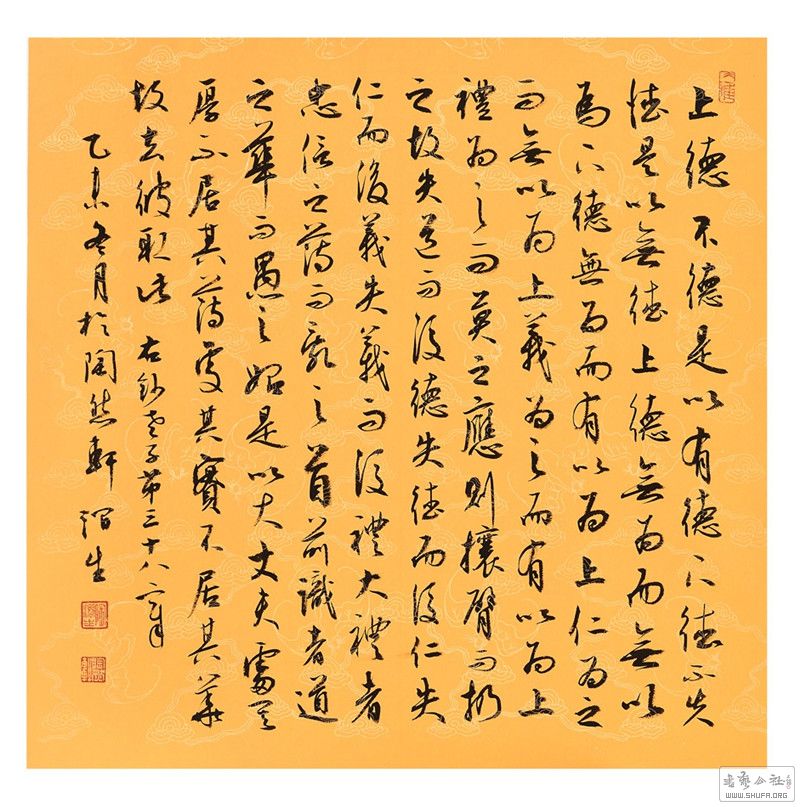 上德不德是以有德下德不失
德是以無德上德無為而無以
為下德無為而有以為上仁為之
而無以為上義為之而有以為上
禮為之而莫之應則攘臂而扔
之故失道而後德失德而後仁失
仁而後義失義而後禮夫禮者
忠信之薄而亂之首前識者道
之華而愚之始是以大丈夫處其
厚不居其薄處其實不居其華
故去彼取此 右鈔老子第三十八章
乙未冬月於陶然軒 生
書藝公社
WWW.SHUFA.ORG